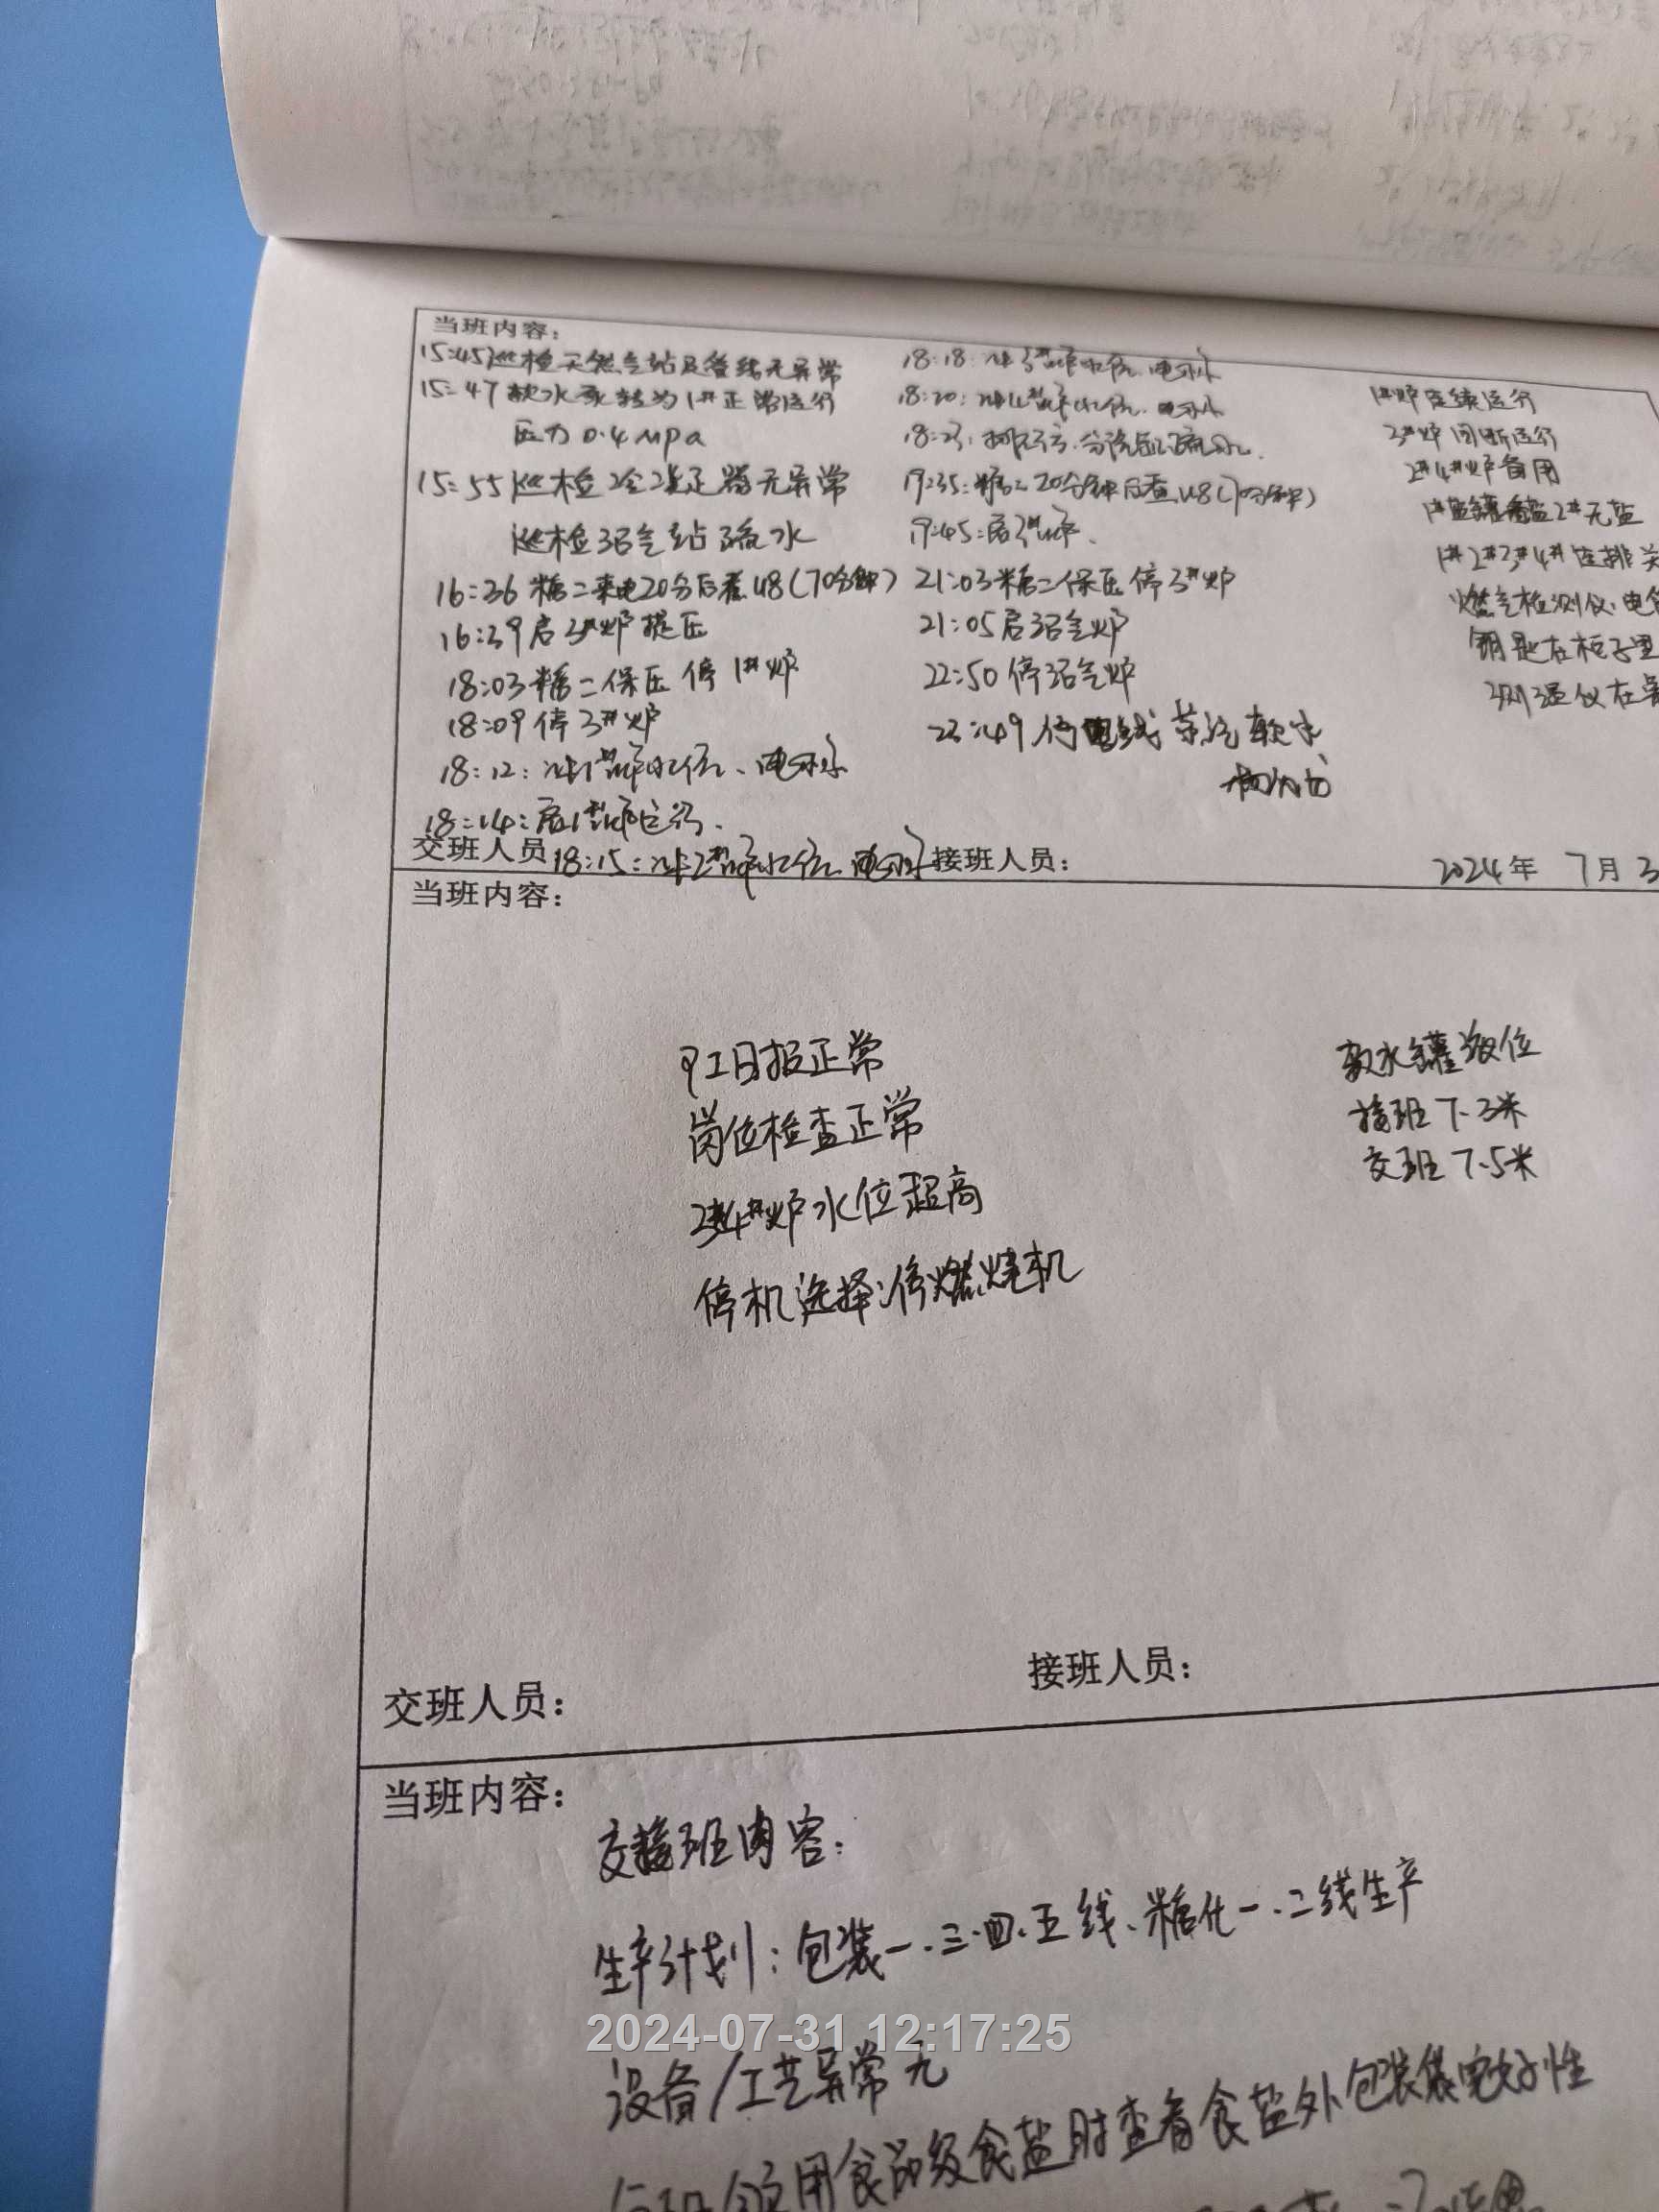 当班内容：
15:45巡检天然气站及管线无异常
15:47软水泵转为1#正常运行
压力0.4MPa
15:55巡检冷凝器无异常
巡检沼气站疏水
16:36糖二来电20分后煮48(70分钟)
16:39启3#炉提压
18:03糖二保压停1#炉
18:09停3#炉
18:12：冲1#炉水位、电
18:14：启1#炉运行.
18:15：冲2#炉水位、电
18:18：冲3#炉水位、电
18:20：冲4#炉水位、电
18:23：排污、分汽缸疏水.
19:35：糖二20分钟后煮48(70分钟)
19:45：启3#炉.
21:03糖二保压停3#炉
21:05启沼气炉
22:50停沼气炉
23:49停 线 蒸汽 软水
1#炉连续运行
3#炉间断运行
2#4#炉备用
1#盐罐备盐2#无盐
1#2#3#4#连排关
燃气检测仪、电
钥匙在柜子里
测温仪在
交班人员
接班人员：
2024年 7月3
当班内容：
日报正常
岗位检查正常
4#炉水位超高
停机选择：停燃烧机
软水罐液位
接班7.3米
交班7.5米
交班人员：
接班人员：
当班内容：
交接班内容：
生产计划：包装一、三、四、五线、糖化一、二线生产
设备/工艺异常无
领用食品级食盐时查看食盐外包装袋完好性
2024-07-31 12:17:25